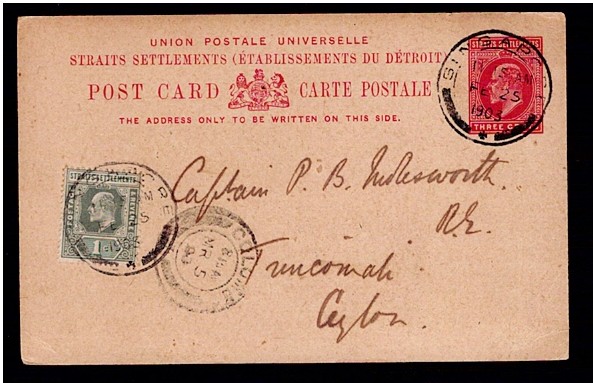 UNION POSTALE UNIVERSELLE
STRAITS SETTLEMENTS (ÉTABLISSEMENTS DU DÉTROIT)
POST CARD CARTE POSTALE
THE ADDRESS ONLY TO BE WRITTEN ON THIS SIDE.
STRAITS SETTLEMENTS
THREE
FE 25
1903
STRAITS SETTLEMENTS
1
COLOMB
MR 5
Captain P. B.
R.E.
Trincomali
Ceylon.